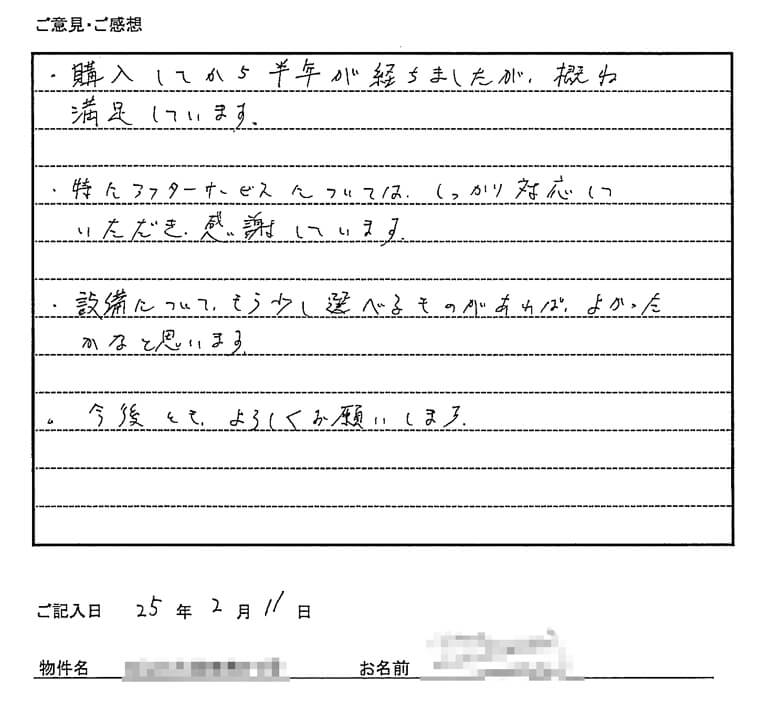 ご意見・ご感想
・購入してから半年が経ちましたが、概ね
満足しています。
・特にアフターサービスについては、しっかり対応して
いただき、感謝しています。
・設備について、もう少し選べるものがあれば、よかった
かなと思います。
。今後とも、よろしくお願いします。
ご記入日 25年2月11日
物件名 お名前